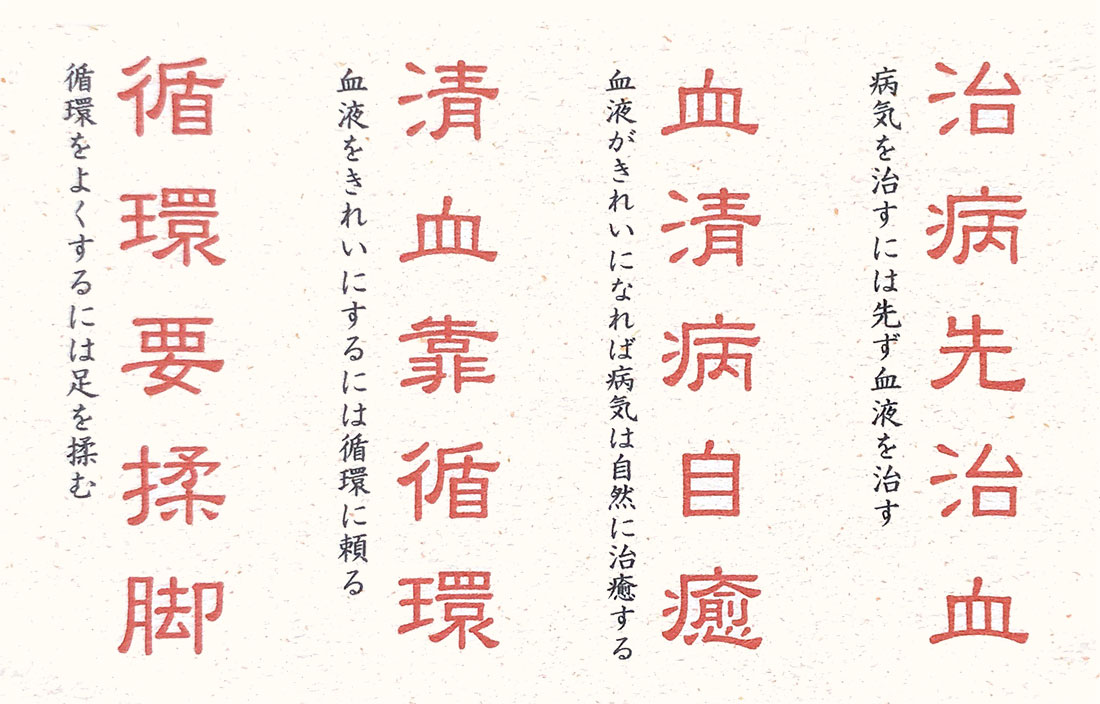 治病先治血
病気を治すには先ず血液を治す
血清病自癒
血液がきれいになれば病気は自然に治癒する
清血靠循環
血液をきれいにするには循環に頼る
循環要揉脚
循環をよくするには足を揉む